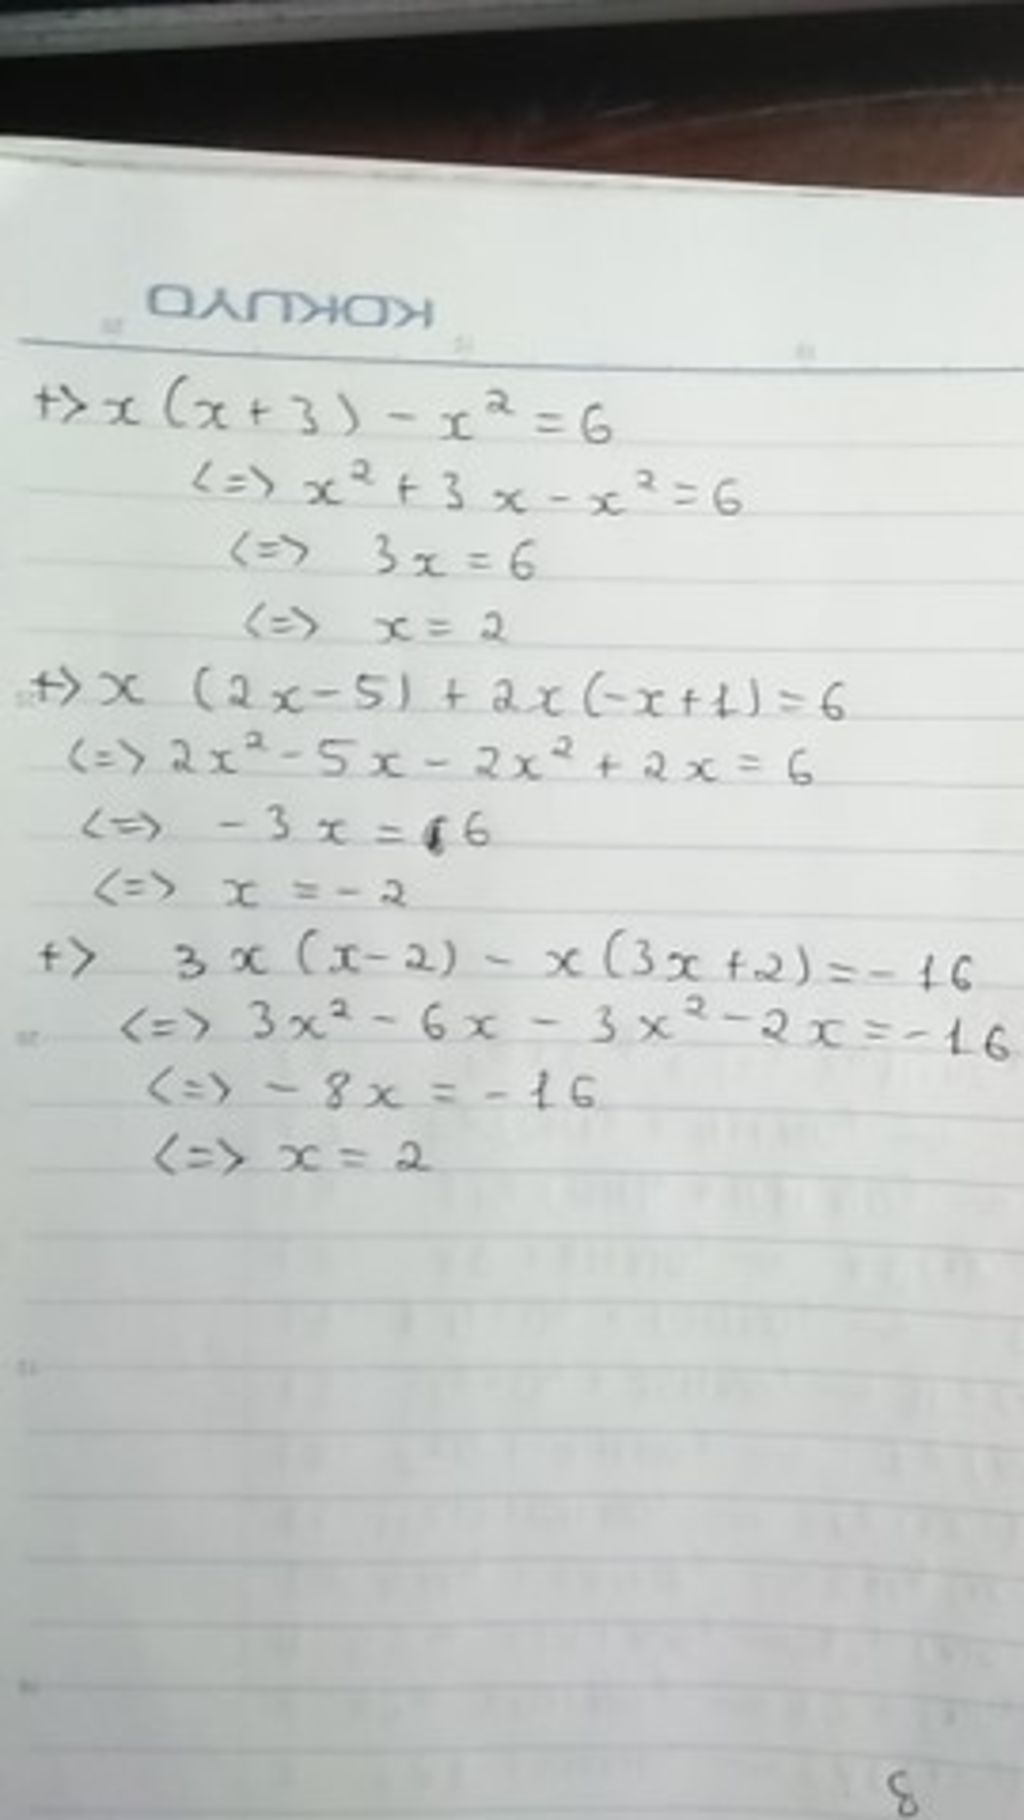 KOKUYO
+> x (x + 3) - x² = 6
<=> x² + 3x - x² = 6
<=> 3x = 6
<=> x = 2
+> x (2x - 5) + 2x (-x + 1) = 6
<=> 2x² - 5x - 2x² + 2x = 6
<=> -3x = 6
<=> x = -2
+> 3x (x - 2) - x (3x + 2) = -16
<=> 3x² - 6x - 3x² - 2x = -16
<=> -8x = -16
<=> x = 2
8